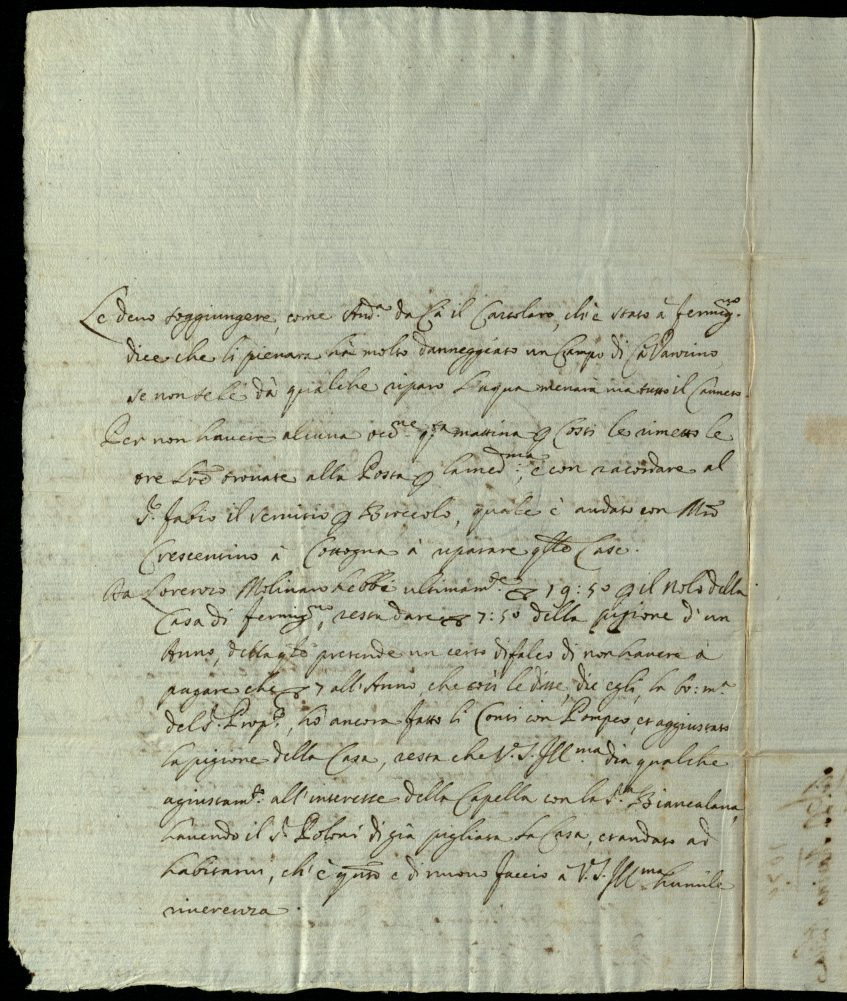 Le devo soggiungere, come And.ª da Cà il Cartolaro, ch'è stato à fermig.no
dice che li pienara hà molto danneggiato un Campo di Cà Vanzino,
se non se le dà qualche riparo l'aqua menarà via tutto il Canneto.
Per non havere alcuna occ.ne q.ta mattina p Costì le rimetto le
tre trovate alla Posta p la med.ma, e con racordare al
S.r fabio il servitio p Broccolo, quale è andato con M.ro
Crescentino à Cottogna à riparare q.lle Case.
Da Lorenzo Molinaro hebbi ultimam.te 19:50 p il Nolo della
Casa di fermig.no, resta dare 7:50 della pigione d'un
Anno, pretende un certo difalco di non havere à
pagare che 7 all'Anno, che così le disse, dic'egli, la bo: m.ª
del S.r Prop.to, hò ancora fatto li Conti con Pompeo, et aggiustato
la pigione della Casa, resta che V.S. Ill.ma dia qualche
agiustam.to all'interesse della Capella con la S.ra Biancalana,
havendo il S.r Poloni di già pigliata la Casa, et andato ad
habitarvi, ch'è q.nto e di nuovo faccio à V.S. Ill.ma humile
riverenza.